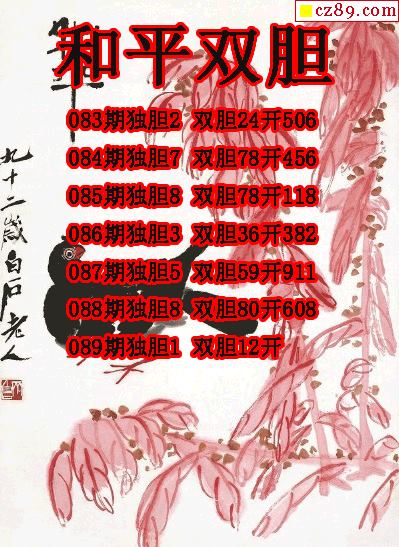 cz89.com
和平双胆
083期独胆2 双胆24开506
084期独胆7 双胆78开456
085期独胆8 双胆78开118
086期独胆3 双胆36开382
087期独胆5 双胆59开911
088期独胆8 双胆80开608
089期独胆1 双胆12开
九十二岁白石老人